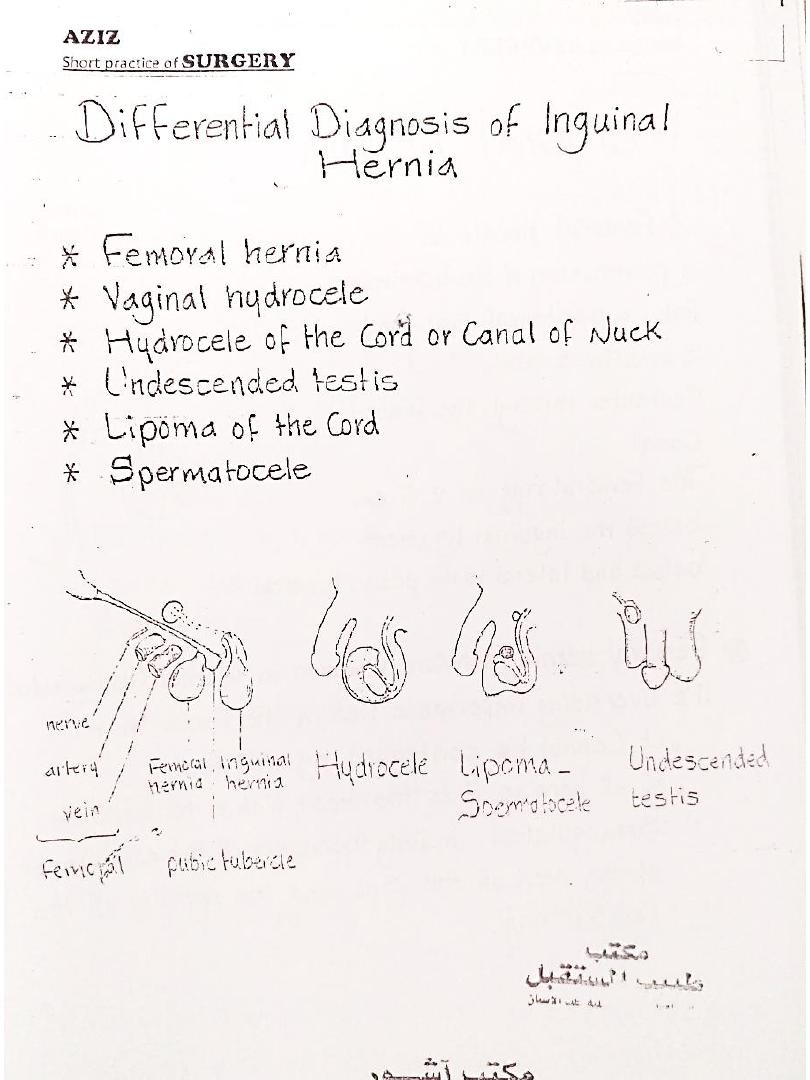 AZIZ
Short practice of SURGERY
Differential Diagnosis of Inguinal
Hernia
* Femoral hernia
* Vaginal hydrocele
* Hydrocele of the Cord or Canal of Nuck
* Undescended testis
* Lipoma of the Cord
* Spermatocele
nerve
artery
vein
Femoral
Femoral hernia
Inguinal hernia
pubic tubercle
Hydrocele
Lipoma -
Spermatocele
Undescended
testis
مكتب
طبيب المستقبل
مكتب آشور